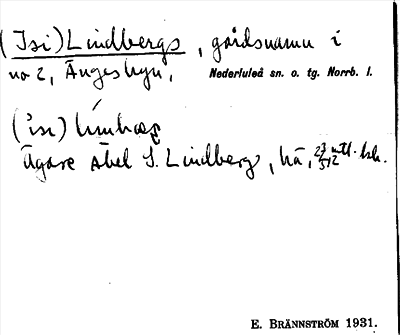 (Isi) Lindbergs, gårdsnamn i
no 2, Ängesbyn, Nederluleå sn. o. tg. Norrb. l.
Ägare Abel S. Lindberg, ha, 23/512 mtl.
E. BRÄNNSTRÖM 1931.